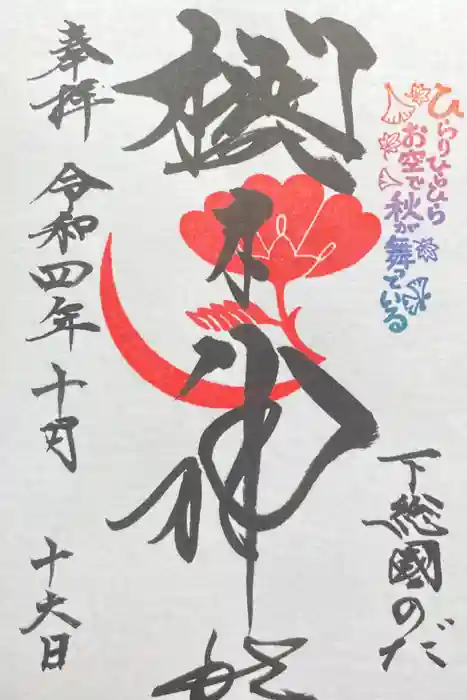 ひらりひらひら
お空で
秋が舞っている
下総國のだ
櫻木神社
奉拝 令和四年十月 十六日